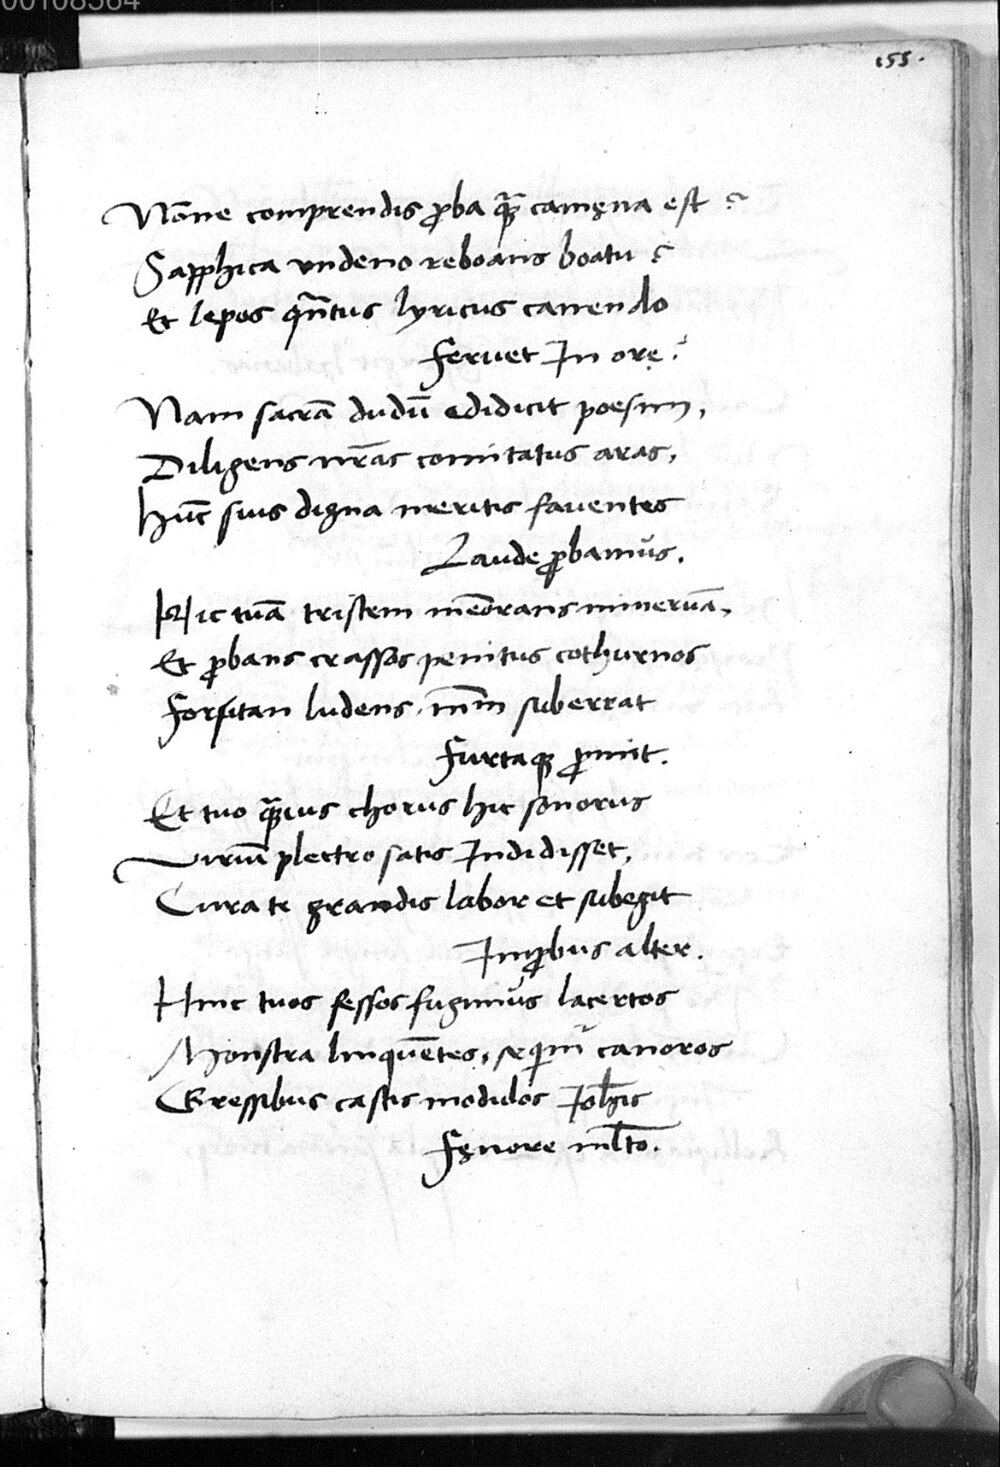 00108584
155.
Nōne comprendis ꝓba qȝ̄ camęna est ?
Sapphica vndeno reboans boatu ?
Et lepos qn̄tus lyricus canendo
feruet In orę ?
Nam sacrā dudū edidicit poesim,
Diligens nr̄as comitatus aras,
Hūc suis digna meritis fauentes
Laude ꝓbamus.
Hic tuā tristem meōrans mineruā,
Et ꝓbans crassos penitus cothurnos
Forsitan ludens, nīm suberrat
Furtaqȝ ꝓmit.
Et tuo qȝ̄uis chorus hic sonorus
Viriū plectro satis Indidisset,
Cura te grandis labor et subegit
Inꝓbus alter.
Hinc tuos fessos fugimus lacertos
Monstra linquētes, seqimur canoros
Gressibus castis modulos Ioh̄is
Fęnore ml̄to.